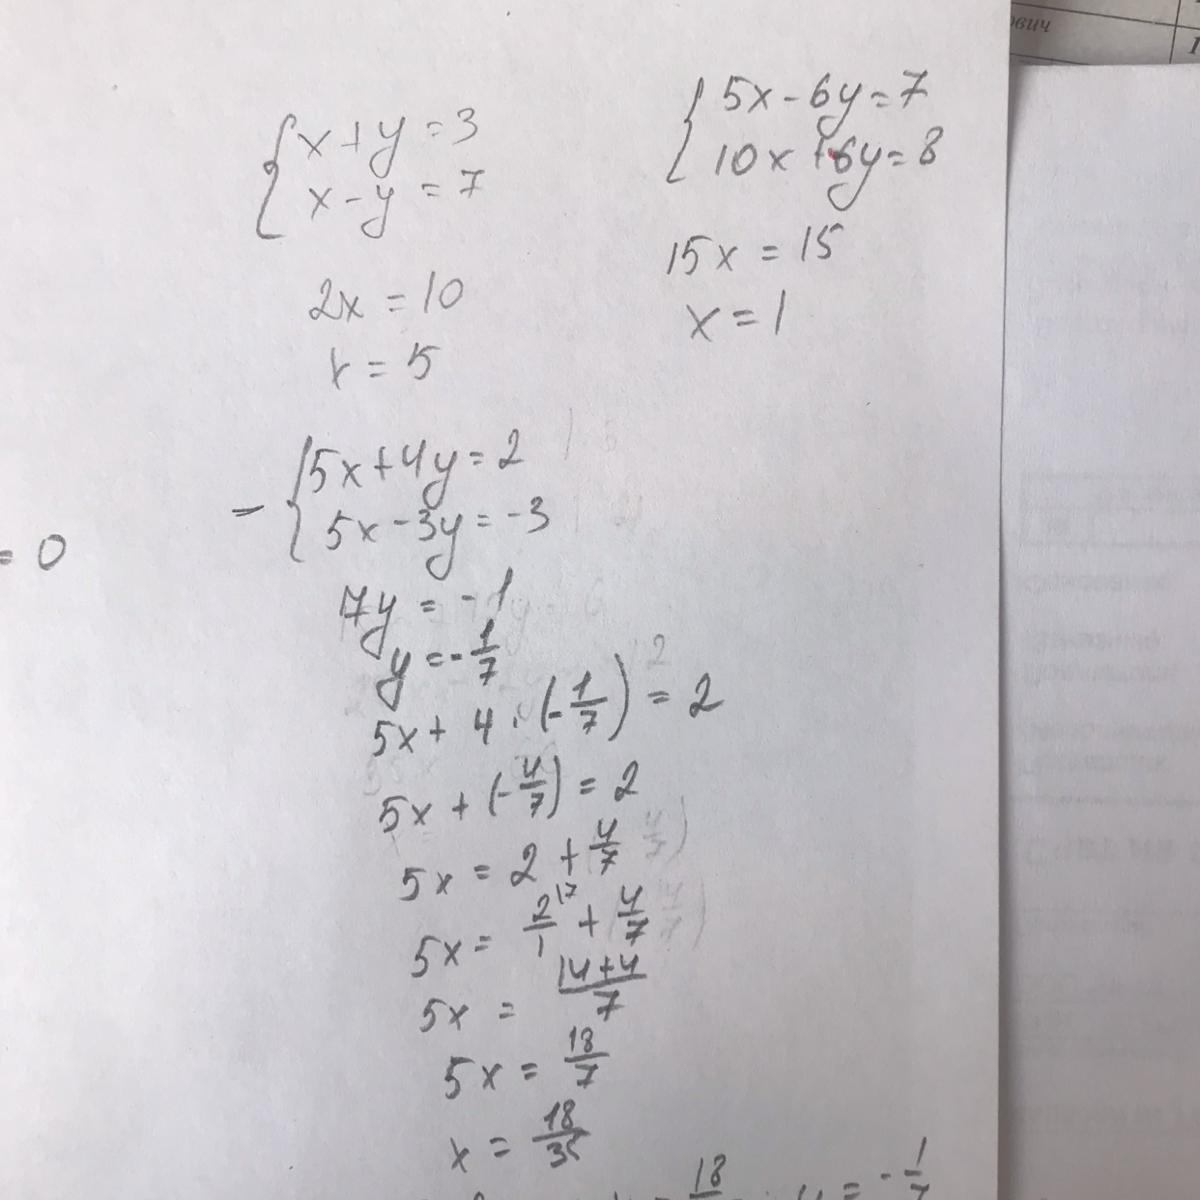 ович
x+y=3
x-y=7
2x=10
x=5
5x-6y=7
10x+6y=8
15x=15
x=1
= 0
- 5x+4y=2
5x-3y=-3
7y=-1
y=-1/7
5x+4·(-1/7)=2
5x+(-4/7)=2
5x=2+4/7
5x=2/1+4/7
5x=14+4/7
5x=18/7
x=18/35